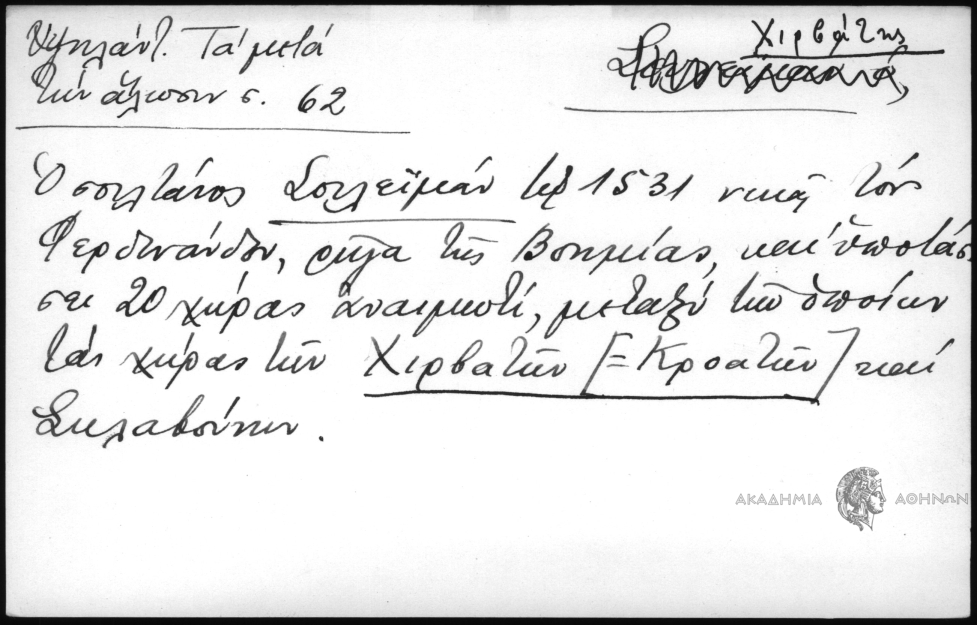 Ὑψηλάντ. Τά μετά
τήν ἅλωσιν σ. 62
Χιρβάτης
Ὁ σουλτάνος Σουλεϊμάν τῷ 1531 νικᾷ τόν
Φερδινάνδον, ρῆγα τῆς Βοημίας, καί ὑποτάσ-
σει 20 χώρας ἀναιμωτί, μεταξύ τῶν ὁποίων
τάς χώρας τῶν Χιρβατῶν [=Κροατῶν] καί
Σκλαβούνων.
ΑΚΑΔΗΜΙΑ ΑΘΗΝΩΝ